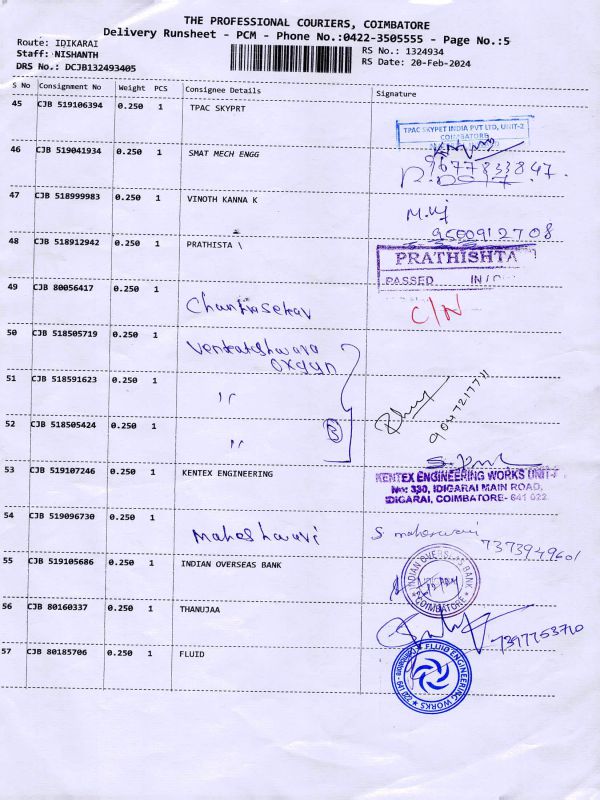 THE PROFESSIONAL COURIERS, COIMBATORE
Delivery Runsheet - PCM - Phone No.:0422-3505555 - Page No.:5
Route: IDIKARAI
Staff: NISHANTH
DRS No.: DCJB132493405
RS No.: 1324934
RS Date: 20-Feb-2024
S No Consignment No Weight PCS Consignee Details Signature
45 CJB 519106394 0.250 1 TPAC SKYPRT
TPAC SKYPET INDIA PVT LTD, UNIT-2
COIMBATORE
46 CJB 519041934 0.250 1 SMAT MECH ENGG
9677833847.
47 CJB 518999983 0.250 1 VINOTH KANNA K
9500912708
48 CJB 518912942 0.250 1 PRATHISTA \
PRATHISHTA
PASSED IN
49 CJB 80056417 0.250 1 Chandrasekar
C/N
50 CJB 518505719 0.250 1 Venkateshwara
oxygyn
51 CJB 518591623 0.250 1 ıı
52 CJB 518505424 0.250 1 ıı
3
53 CJB 519107246 0.250 1 KENTEX ENGINEERING
KENTEX ENGINEERING WORKS UNIT-I
No: 330, IDIGARAI MAIN ROAD,
IDIGARAI, COIMBATORE- 641 022.
54 CJB 519096730 0.250 1 Maheshwari
S maheswari
7373949601
55 CJB 519105686 0.250 1 INDIAN OVERSEAS BANK
INDIAN OVERSEAS BANK
COIMBATORE
56 CJB 80160337 0.250 1 THANUJAA
7397753710
57 CJB 80185706 0.250 1 FLUID
FLUID ENGINEERING WORKS